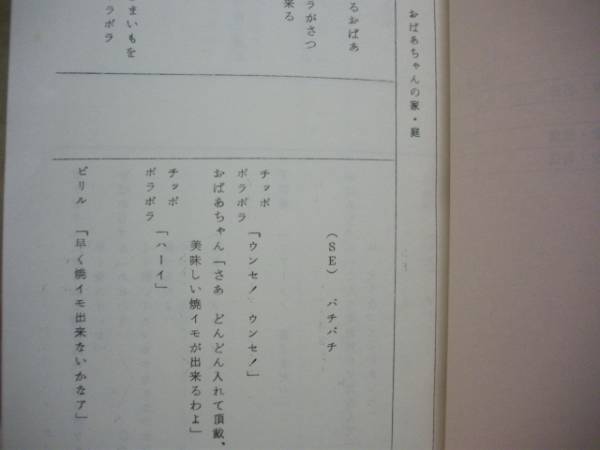 おばあちゃんの家・庭
るおばあ
ラがさつ
来る
まいもを
ラポラ
(SE) パチパチ
チッポ
ポラポラ「ウンセノ ウンセノ」
おばあちゃん「さあ どんどん入れて頂戴、
美味しい焼イモが出来るわよ」
チッポ
ポラポラ「ハーイ」
ピリル「早く焼イモ出来ないかなア」